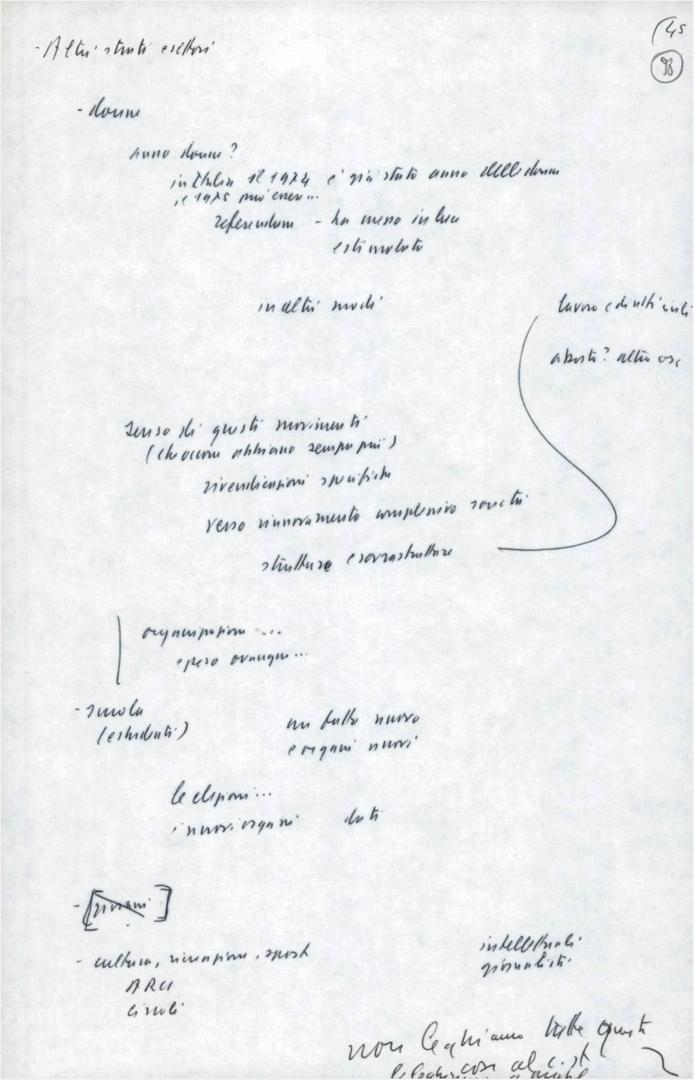 45
98
- Altri strati e settori
- donne
anno donne?
in Italia il 1974 è già stato anno delle donne
il 1975 può essere...
referendum - ha messo in luce
e stimolato
in altri modi
lavoro e diritti civili
aborti? altre cose
senso di questi movimenti
(che occorre abbiano sempre più)
rivendicazioni specifiche
verso rinnovamento complessivo società
strutture e sovrastrutture
organizzazione ...
e peso ovunque...
- scuola
(e studenti)
un fatto nuovo
e organi nuovi
le elezioni...
i nuovi organi
dati
- [giovani]
- cultura, ricreazione, sport
ARCI
circoli
intellettuali
giornalisti
non leghiamo tutte queste
cose al c.st